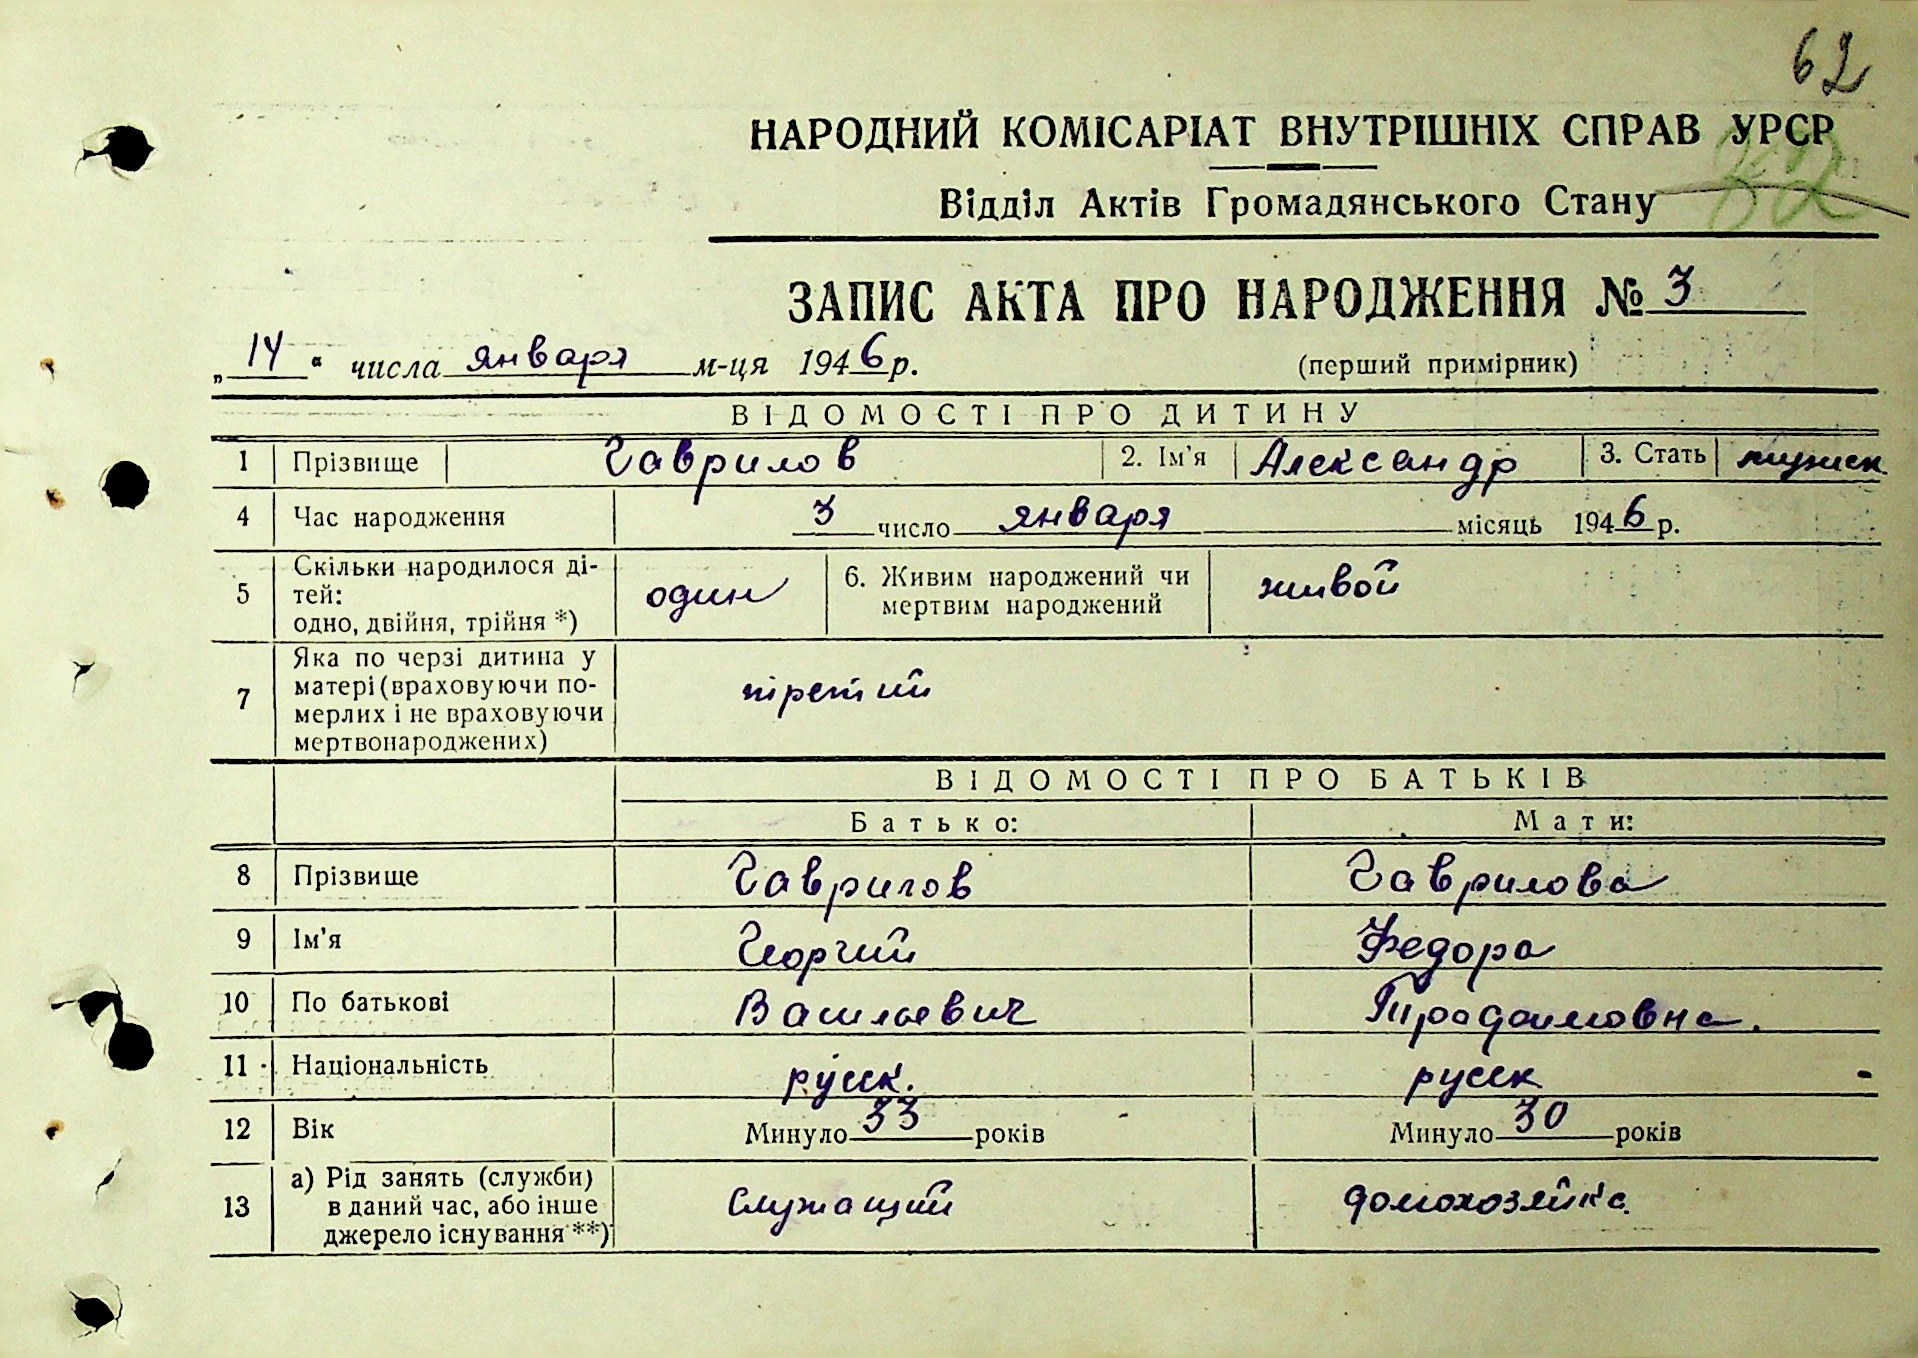 62
НАРОДНИЙ КОМІСАРІАТ ВНУТРІШНІХ СПРАВ УРСР
Відділ Актів Громадянського Стану
ЗАПИС АКТА ПРО НАРОДЖЕННЯ № 3
„ 14 “ числа января м-ця 1946 р. (перший примірник)
ВІДОМОСТІ ПРО ДИТИНУ
1 Прізвище Гаврилов 2. Ім'я Александр 3. Стать мужск.
4 Час народження 3 число января місяць 1946 р.
5 Скільки народилося ді-
тей:
одно, двійня, трійня *) один 6. Живим народжений чи
мертвим народжений живой
7 Яка по черзі дитина у
матері (враховуючи по-
мерлих і не враховуючи
мертвонароджених) третий
ВІДОМОСТІ ПРО БАТЬКІВ
Батько: Мати:
8 Прізвище Гаврилов Гаврилова
9 Ім'я Георгий Федора
10 По батькові Васильевич
11 Національність русск. русск
12 Вік Минуло 33 років Минуло 30 років
13 а) Рід занять (служби)
в даний час, або інше
джерело існування **) Служащий домохозяйка